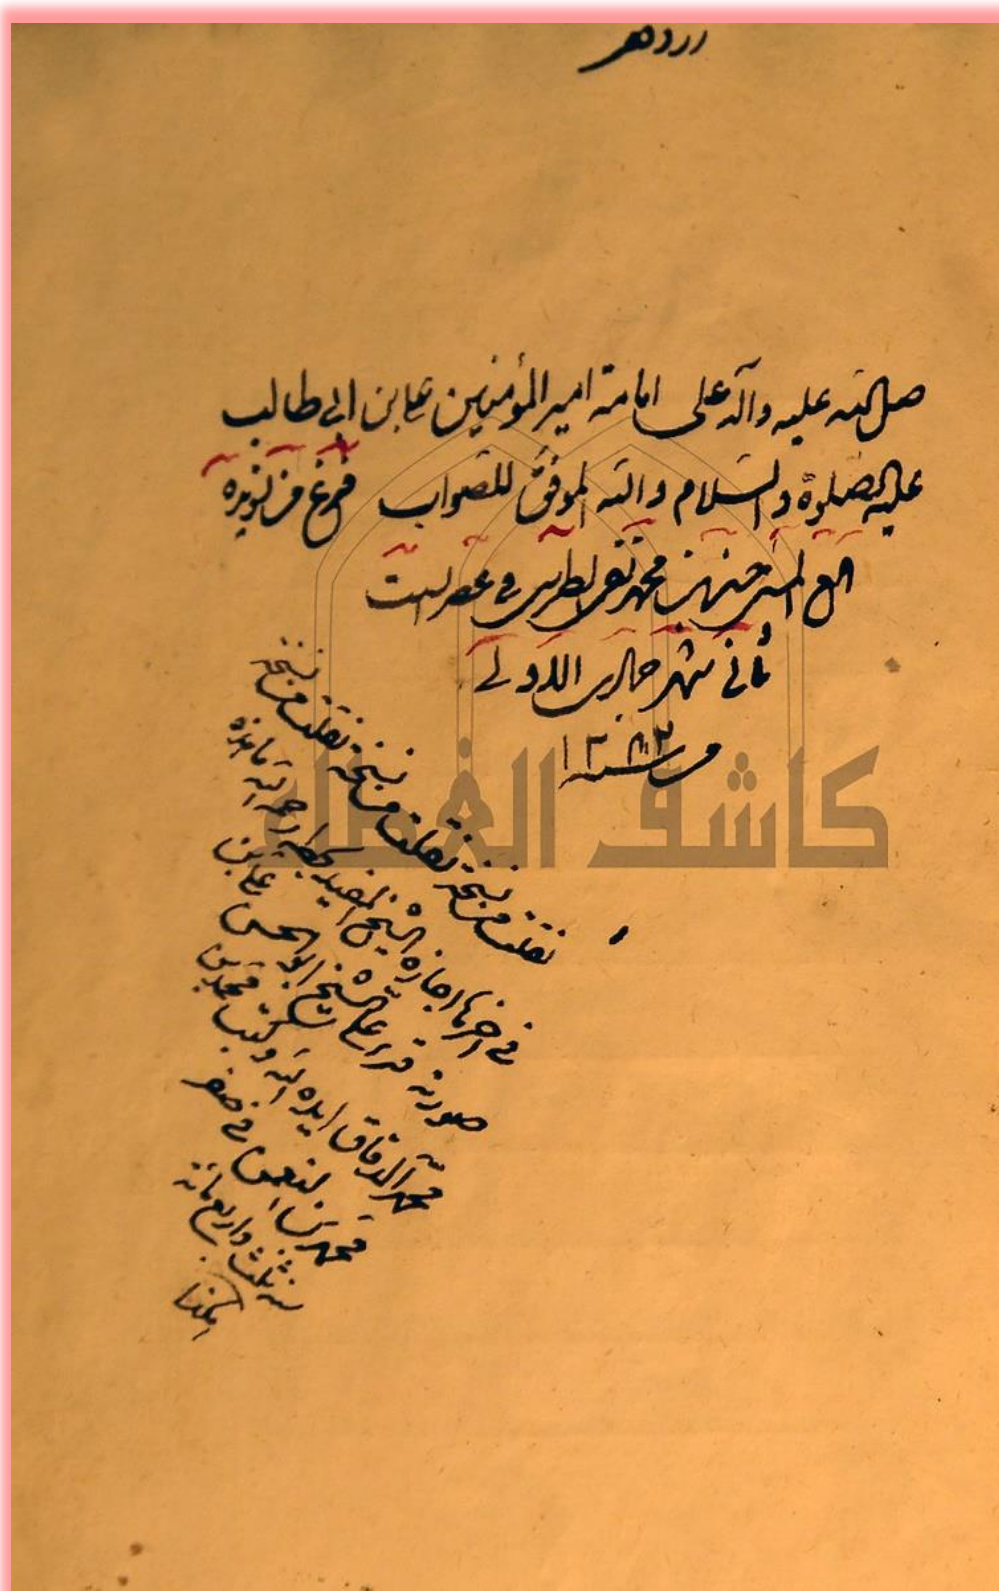 صلى الله عليه وآله على امامة امير المؤمنين علي بن ابي طالب
عليه الصلوة والسلام والله الموفق للصواب فرغ من تسويده
حسين بن محمد تقي الطبرسي في عصر السبت
ثاني شهر جمادى الاولى
من سنه ١٢٨٣
نقلت من نسخة نقلت من نسخة نقلت من نسخة
في اخرها اجازة الشيخ المفيد بخطه رحمه الله ما هذه
صورته قرء علي الشيخ ابو الحسن علي بن
محمد الدقاق ايده الله وكتب محمد بن
محمد بن النعمان في صفر
سنه ثلث واربعمائة
هكذا
كاشف الغطاء